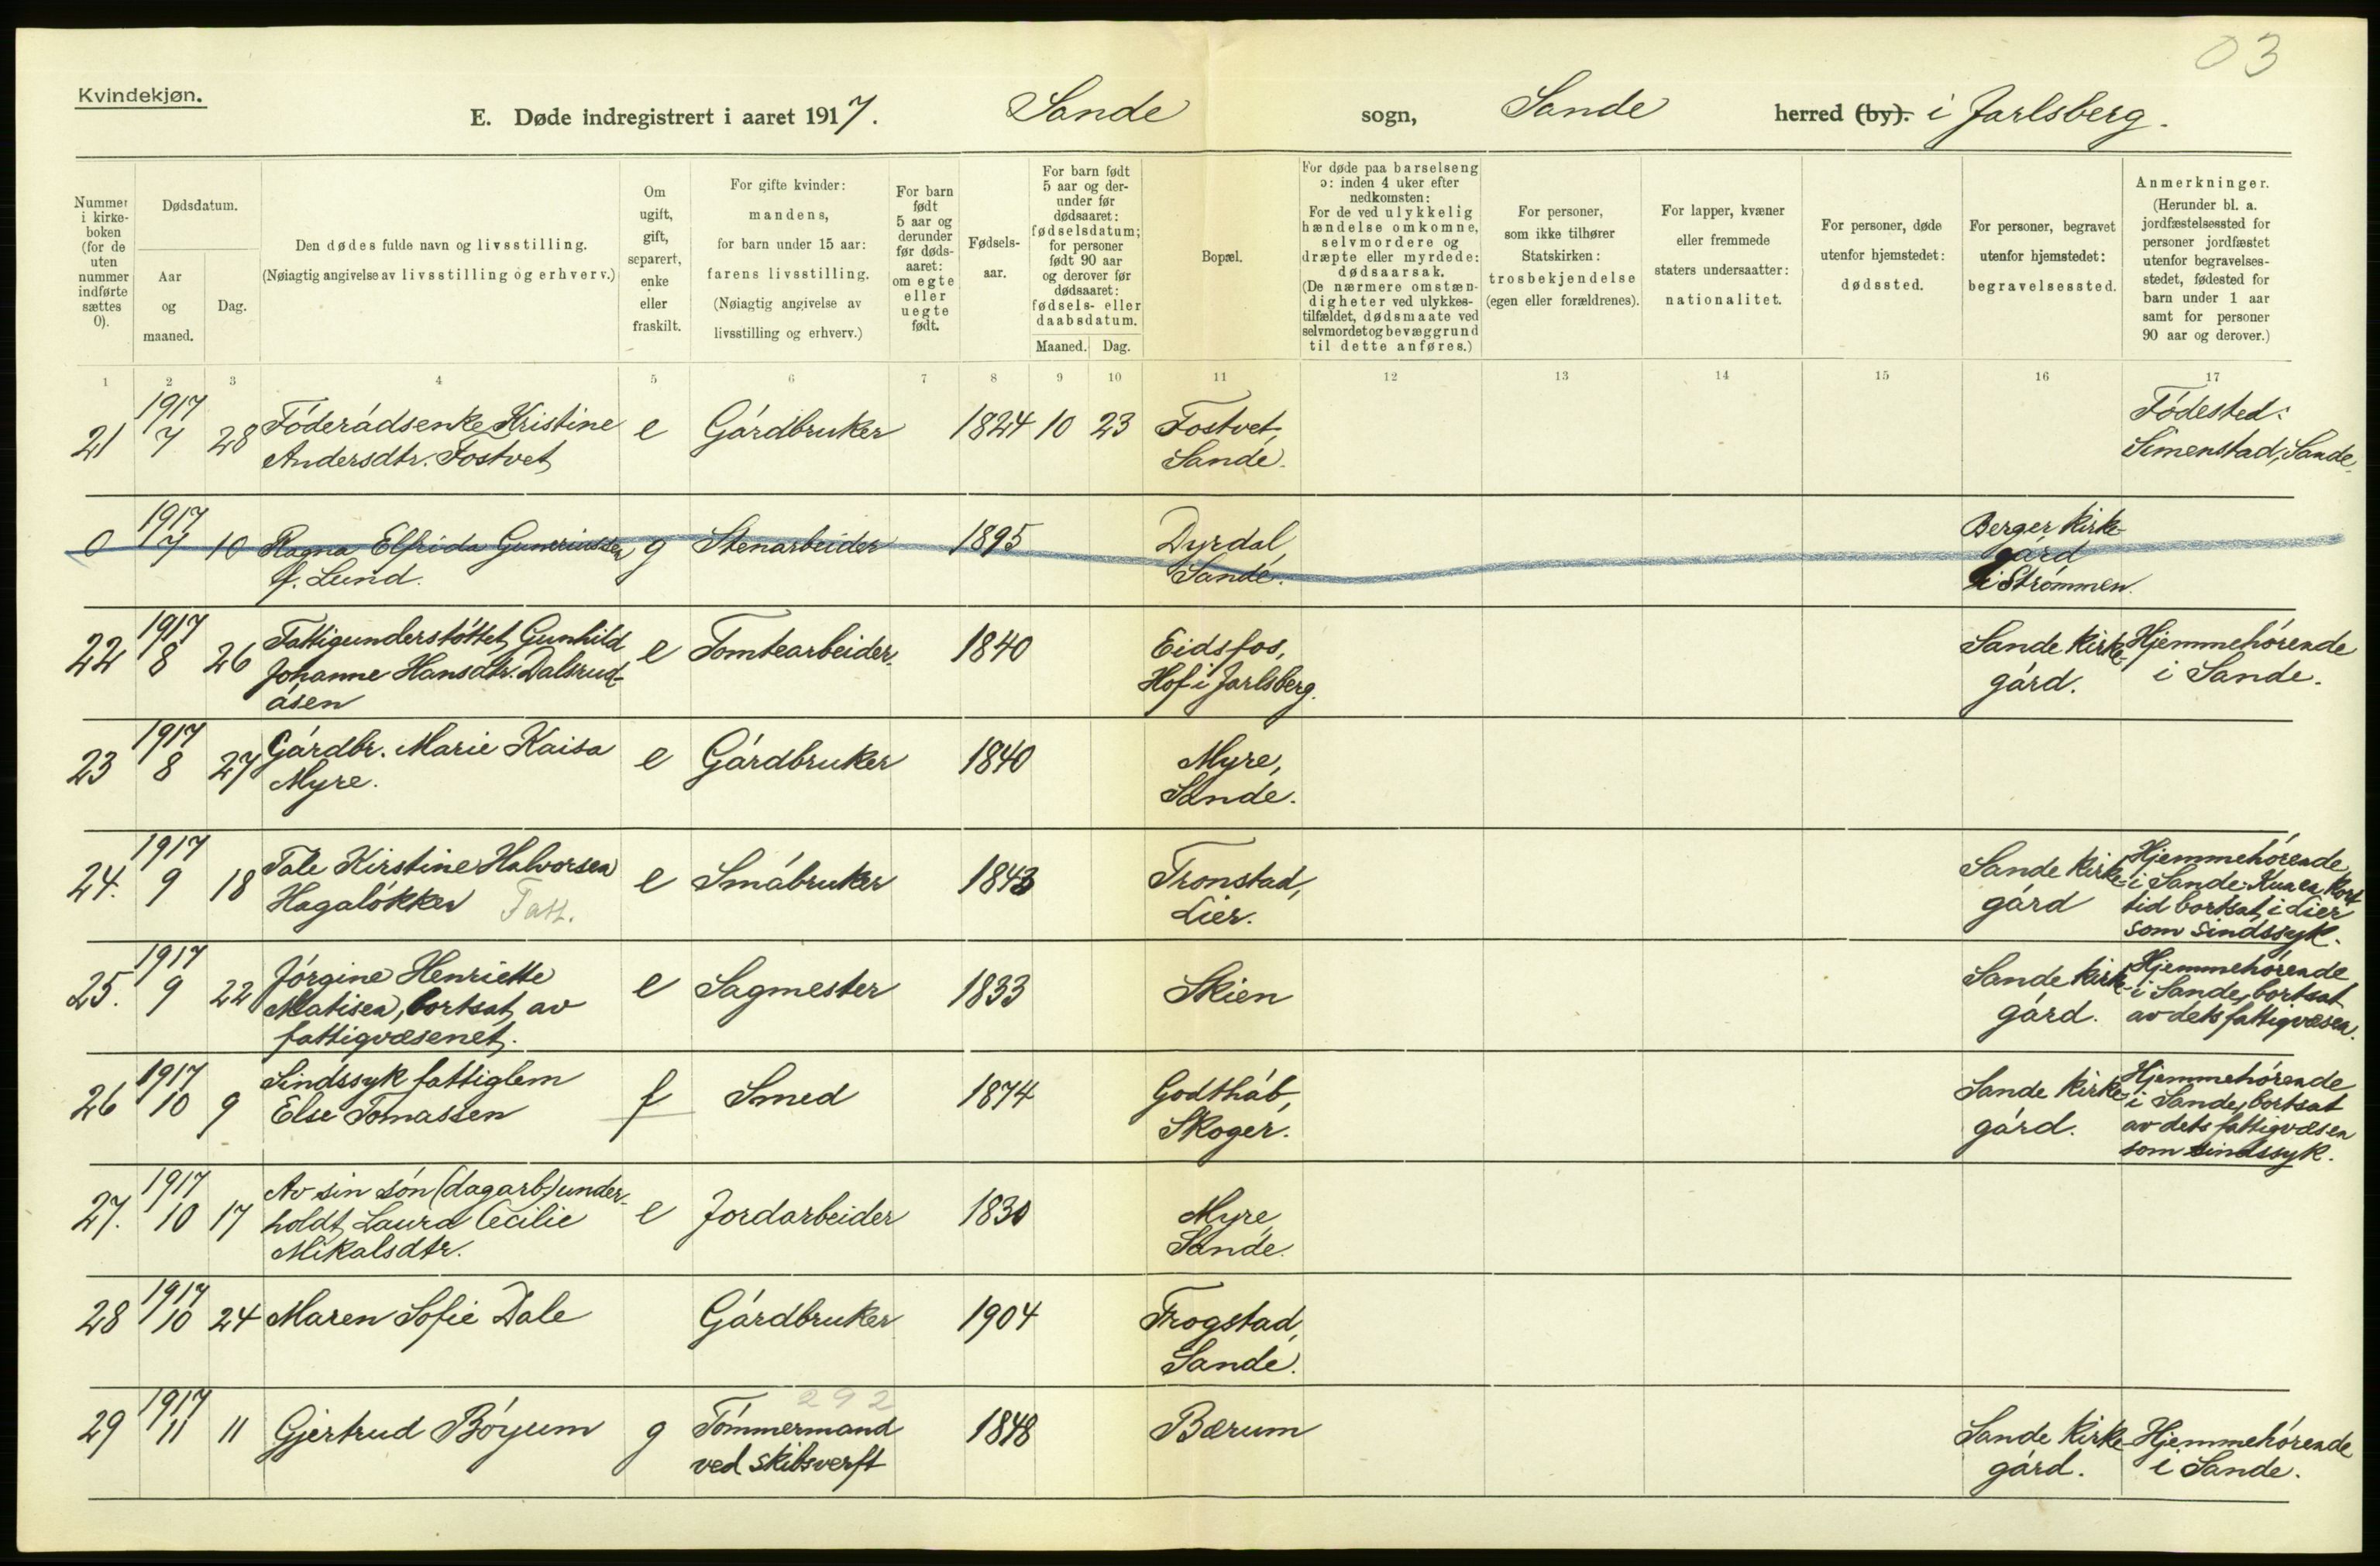 03
Kvindekjøn.
E. Døde indregistrert i aaret 1917. Sande sogn, Sande herred (by). i Jarlsberg.
Nummer i kirkeboken (for de uten nummer indførte sættes 0).
Dødsdatum.
Aar og maaned.
Dag.
Den dødes fulde navn og livsstilling.
(Nøiagtig angivelse av livsstilling og erhverv.)
Om ugift, gift, separert, enke eller fraskilt.
For gifte kvinder: mandens, for barn under 15 aar: farens livsstilling. (Nøiagtig angivelse av livsstilling og erhverv.)
For barn født 5 aar og derunder før dødsaaret: om egte eller uegte født.
Fødselsaar.
For barn født 5 aar og derunder før dødsaaret: fødselsdatum; for personer født 90 aar og derover før dødsaaret: fødsels- eller daabsdatum.
Maaned. Dag.
Bopæl.
For døde paa barselseng ɔ: inden 4 uker efter nedkomsten: For de ved ulykkelig hændelse omkomne, selvmordere og dræpte eller myrdede: dødsaarsak. (De nærmere omstændigheter ved ulykkestilfældet, dødsmaate ved selvmordet og bevæggrund til dette anføres.)
For personer, som ikke tilhører Statskirken: trosbekjendelse (egen eller forældrenes).
For lapper, kvæner eller fremmede staters undersaatter: nationalitet.
For personer, døde utenfor hjemstedet: dødssted.
For personer, begravet utenfor hjemstedet: begravelsessted.
Anmerkninger. (Herunder bl. a. jordfæstelsessted for personer jordfæstet utenfor begravelsesstedet, fødested for barn under 1 aar samt for personer 90 aar og derover.)
1 2 3 4 5 6 7 8 9 10 11 12 13 14 15 16 17
21 1917 7 28 Föderádsenke Kristine Andersdtr. Fostvet e Gárdbruker 1824 10 23 Fostvet, Sande. Födested: Simenstad, Sande.
0 1917 7 10 Ragna Elfrida f. Lund. g Stenarbeider 1895 Dyrdal, Sande. Berger kirkegárd i Strömmen.
22 1917 8 26 Fattigunderstöttet Gunhild Johanne Hansdtr. Dalsrudásen e Tomtearbeider. 1840 Eidsfos, Hof i Jarlsberg. Sande kirkegárd. Hjemmehörende i Sande.
23 1917 8 27 Gárdbr. Marie Kaisa Myre. e Gárdbruker 1840 Myre, Sande.
24. 1917 9 18 Tale Kirstine Halvorsen Hagalökken Fatt. e Smábruker 1843 Tronstad, Lier. Sande kirkegárd Hjemmehörende i Sande. Kun en kort tid bortsat i Lier som sindssyk.
25. 1917 9 22 Jörgine Henriette Matisen, bortsat av fattigvæsenet. e Sagmester 1833 Skien Sande kirkegárd. Hjemmehörende i Sande, bortsat av dets fattigvæsen.
26 1917 10 9 Sindssyk fattiglem Else Tomassen f Smed 1874 Godtháb, Skoger. Sande kirkegárd. Hjemmehörende i Sande, bortsat av dets fattigvæsen som sindssyk.
27. 1917 10 17 Av sin sön (dagarb) underholdt Laura Cecilie Mikalsdtr. e Jordarbeider 1830 Myre, Sande.
28 1917 10 24 Maren Sofie Dale Gárdbruker 1904 Frogstad, Sande.
29 1917 11 11 Gjertrud Böyum g 292 Tömmermand ved skibsverft 1848 Bærum Sande kirkegárd. Hjemmehörende i Sande.